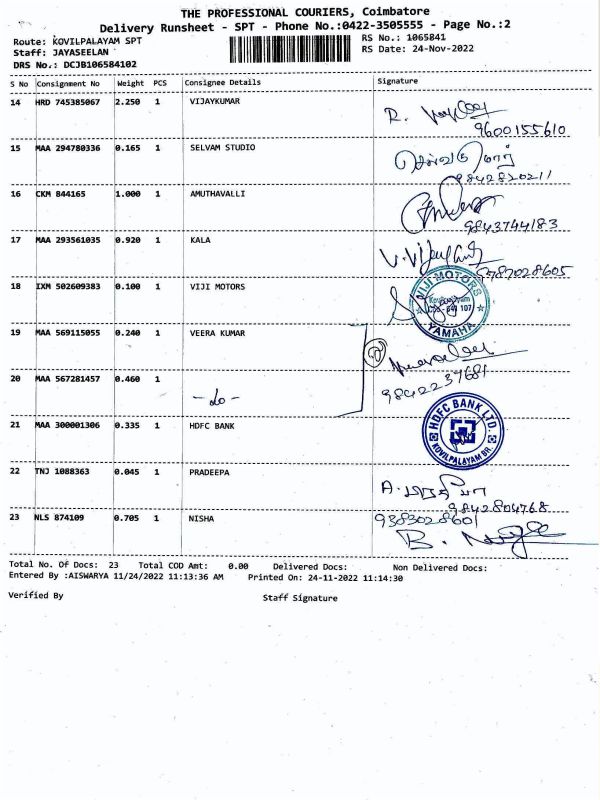 THE PROFESSIONAL COURIERS, Coimbatore
Delivery Runsheet - SPT - Phone No.:0422-3505555 - Page No.:2
Route: KOVILPALAYAM SPT
Staff: JAYASEELAN
DRS No.: DCJB106584102
RS No.: 1065841
RS Date: 24-Nov-2022
S No Consignment No Weight PCS Consignee Details Signature
14 HRD 745385067 2.250 1 VIJAYKUMAR
9600155610
15 MAA 294780336 0.165 1 SELVAM STUDIO
9842820211
16 CKM 844165 1.000 1 AMUTHAVALLI
9843744183
17 MAA 293561035 0.920 1 KALA
9787028605
18 IXM 502609383 0.100 1 VIJI MOTORS
VIJI MOTORS
YAMAHA
19 MAA 569115055 0.240 1 VEERA KUMAR
20 MAA 567281457 0.460 1
9842237681
21 MAA 300001306 0.335 1 HDFC BANK
HDFC BANK LTD.
KOVILPALAYAM BR.
22 TNJ 1088363 0.045 1 PRADEEPA
9842804768
23 NLS 874109 0.705 1 NISHA
9383028601
Total No. Of Docs: 23 Total COD Amt: 0.00 Delivered Docs: Non Delivered Docs:
Entered By :AISWARYA 11/24/2022 11:13:36 AM Printed On: 24-11-2022 11:14:30
Verified By Staff Signature